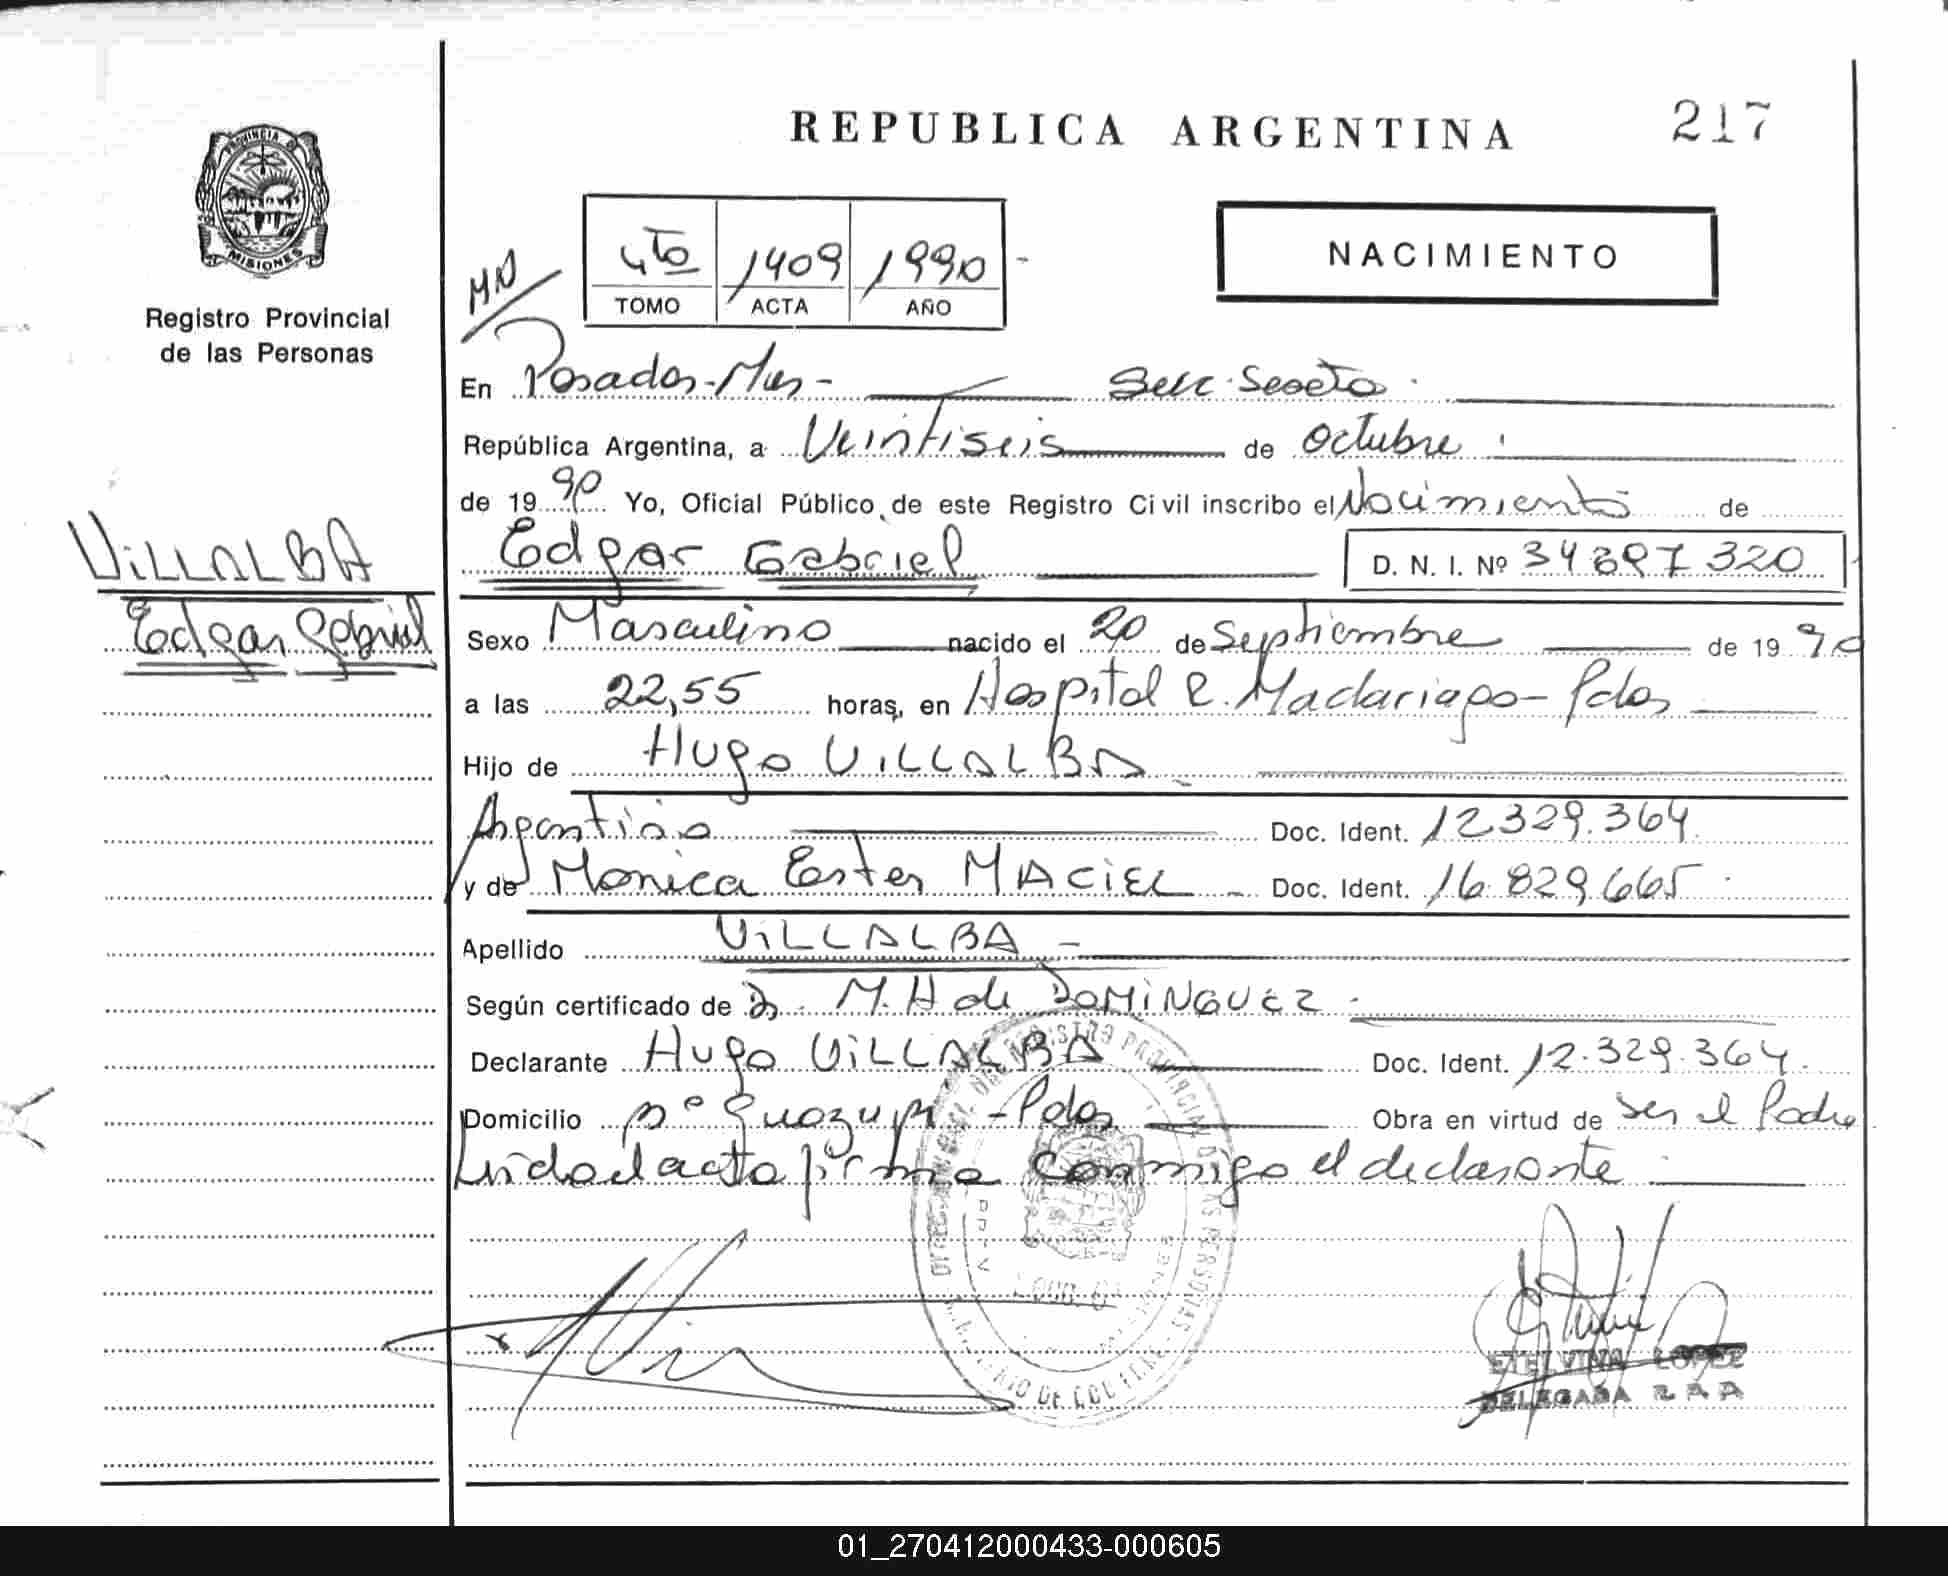 REPUBLICA ARGENTINA
217
PROVINCIA DE
MISIONES
Registro Provincial
de las Personas
MN
4to 1409 1990 -
TOMO ACTA AÑO
NACIMIENTO
En Posadas-Mnes- Secc. Sexta.
República Argentina, a Veintiseis de Octubre
de 1990 Yo, Oficial Público de este Registro Civil inscribo el Nacimiento de
Edgar Gabriel D. N. I. Nº 34897320
VILLALBA
Edgar Gabriel
Sexo Masculino nacido el 20 de Septiembre de 1990
a las 22,55 horas, en Hospital R. Madariaga-Pdas
Hijo de Hugo VILLALBA
Argentino Doc. Ident. 12.329.364.
y de Monica Ester MACIEL - Doc. Ident. 16.829.665.
Apellido VILLALBA -
Según certificado de M. H de DOMINGUEZ.
Declarante Hugo VILLALBA Doc. Ident. 12.329.364.
Domicilio Bº -Pdas Obra en virtud de Ser el Padre
Leida el acta firma conmigo el declarante
REGISTRO PROVINCIAL DE LAS PERSONAS
ETELVINA LOPEZ
DELEGADA
01_270412000433-000605